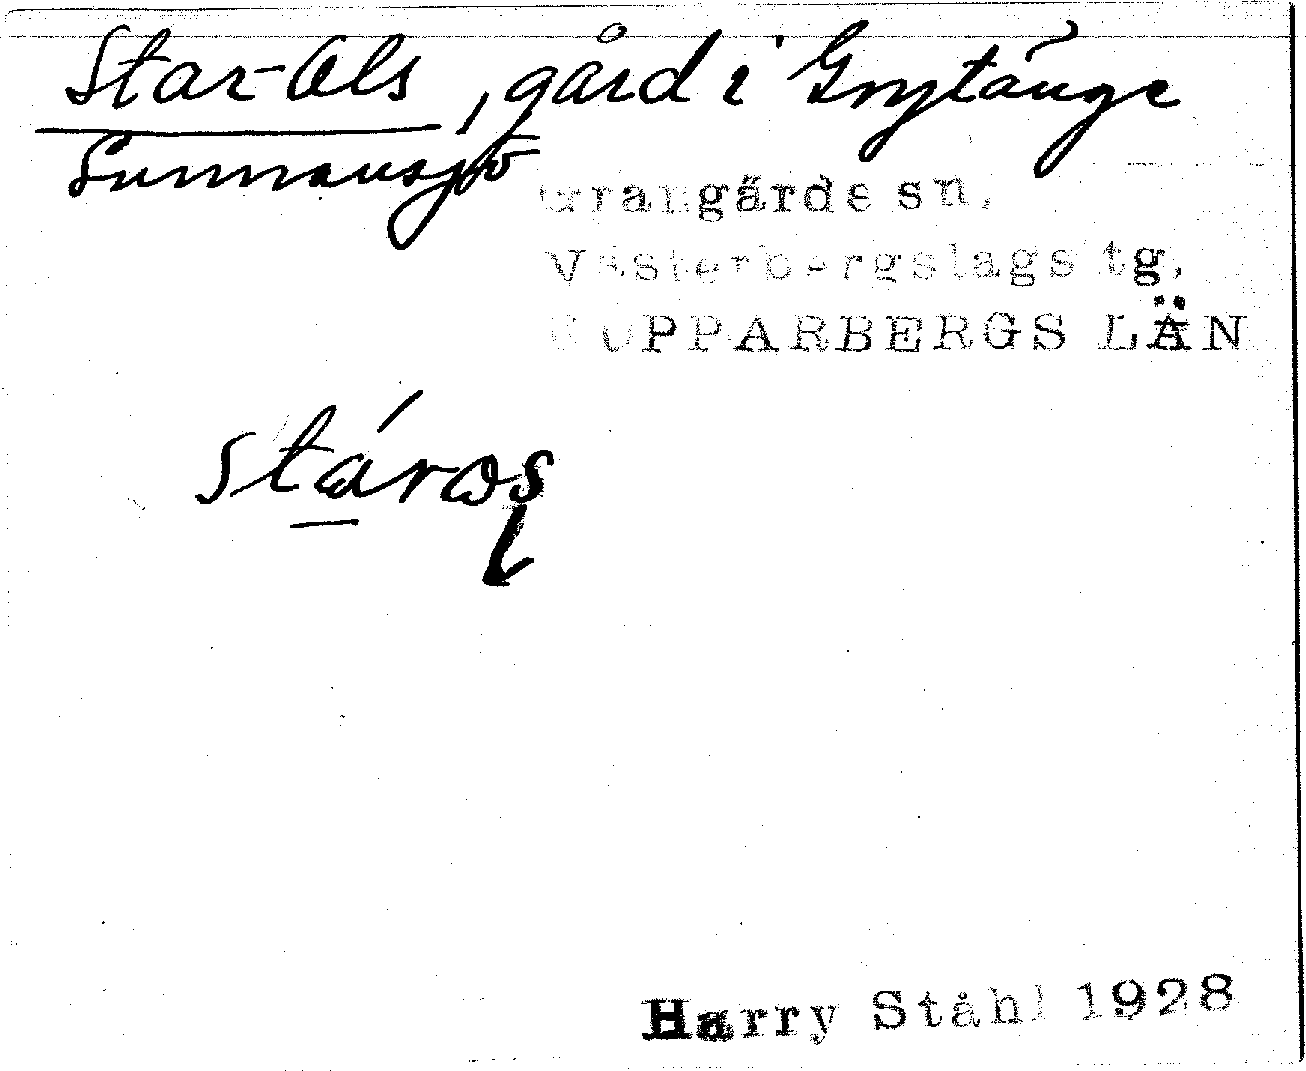 Star-Ols, gård i Grytänge
Sunnansjö
Grangärde sn,
Västerbergslags tg,
KOPPARBERGS LÄN
stárωs
Harry Ståhl 1928